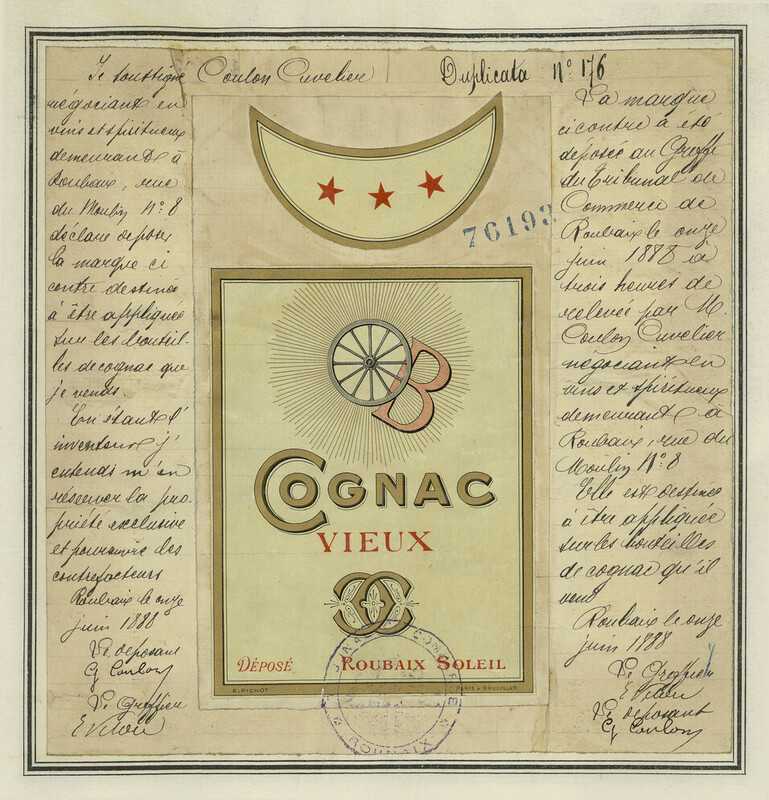 Je soussigné Coulon Cuvelier Duplicata N° 176
négociant en
vins et spiritueux
demeurant à
Roubaix, rue
du Moulin N° 8
déclare déposer
la marque ci
contre destinée
à être appliquée
sur les bouteil-
les de cognac que
je vends.
En étant l'
inventeur j'
entends m'en
réserver la pro-
priété exclusive
et poursuivre les
contrefacteurs
Roubaix le onze
juin 1888
Le déposant
G Coulon
Le Greffier
76193
B
COGNAC
VIEUX
CC
DÉPOSÉ ROUBAIX SOLEIL
E. PICHOT PARIS & BRUXELLES
COMMERCE
ROUBAIX
La marque
ci contre a été
déposée au Greffe
du Tribunal de
Commerce de
Roubaix le onze
juin 1888 à
trois heures de
relevée par M.
Coulon Cuvelier
négociant en
vins et spiritueux
demeurant à
Roubaix, rue du
Moulin N° 8
Elle est destinée
à être appliquée
sur les bouteilles
de cognac qu'il
vend
Roubaix le onze
juin 1888
Le Greffier
Le déposant
G Coulon